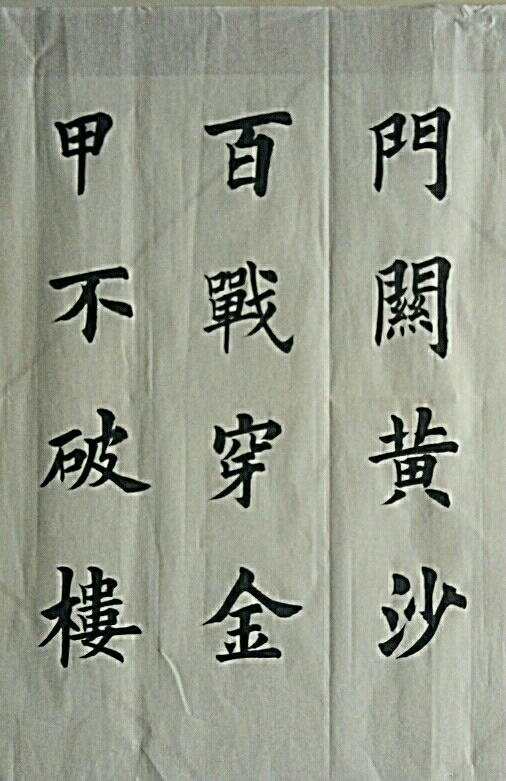 門關黄沙
百戰穿金
甲不破樓